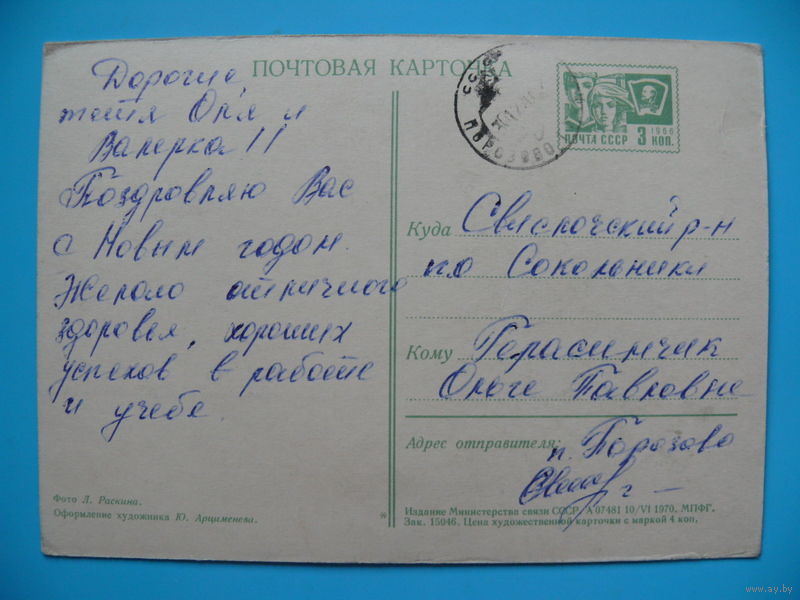 ПОЧТОВАЯ КАРТОЧКА
Дорогие
тётя Оля и
Валерка!!
Поздравляю Вас
с Новым годом.
Желаю отличного
здоровья, хороших
успехов в работе
и учебе.
Фото Л. Раскина.
Оформление художника Ю. Арцименева.
СССР
ПОРОЗОВО
ПОЧТА СССР 3 1966 КОП.
Куда Свислочский р-н
п.о Сокольники
Кому Герасимчик
Ольге Павловне
Адрес отправителя: п. Порозово
Издание Министерства связи СССР. А 07481 10/VI 1970. МПФГ.
Зак. 15046. Цена художественной карточки с маркой 4 коп.
www.ay.by